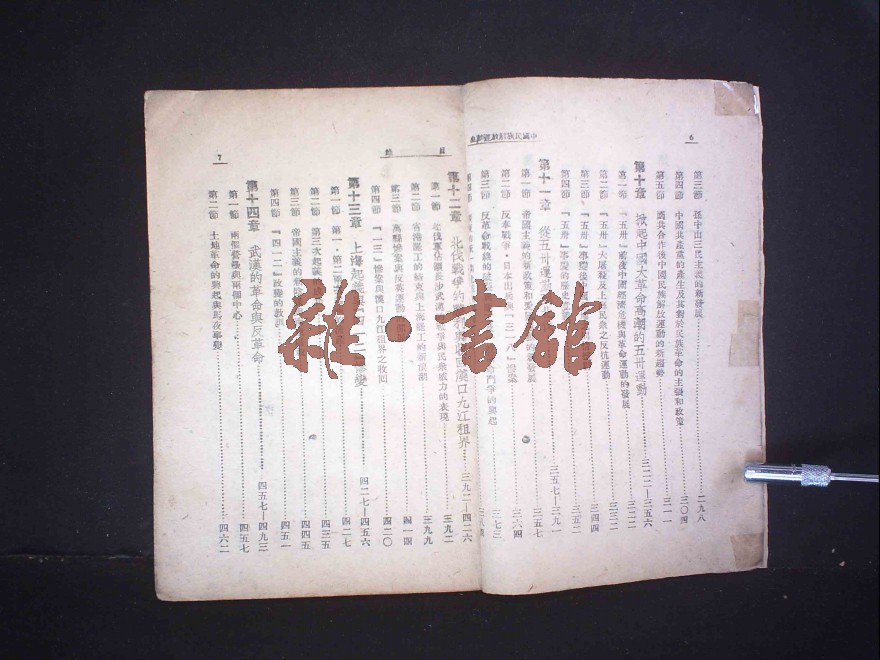 6
中國民族解放運動史
第三節 孫中山三民主義的新發展 二九八
第四節 中國共產黨的產生及其對於民族革命的主張和政策 三〇四
第五節 國共合作後中國民族解放運動的新趨勢 三一一
第十章 掀起中國大革命高潮的五卅運動 三二二—三五六
第一節 『五卅』前夜中國經濟危機與革命運動的發展 三二二
第二節 『五卅』大屠殺及上海民衆之反抗運動
第三節 『五卅』事變 三四四
第四節 『五卅』事變的歷史 三五二
第十一章 從五卅運動 三五七—三九一
第一節 帝國主義的新政策和 發展 三五七
第二節 反奉戰爭·日本出兵與『三一八』慘案 三六四
第三節 反革命戰線的 鬥爭的興起 三七三
三八四
目錄
7
第十二章 北伐戰爭的 與收回漢口九江租界 三九二—四二六
第一節 北伐軍佔領長沙武漢 與民衆威力的表現 三九二
第二節 省港罷工的結束與上海罷工的新高潮 三九九
第三節 萬縣慘案與反英運動 四一四
第四節 『一三』慘案與漢口九江租界之收回 四二〇
第十三章 上海起義與四一二政變 四二七—四五六
第一節 第一·第二 四二七
第二節 第三次起義 四三五
第三節 帝國主義的 四四五
第四節 『四一二』政變的教訓 四五一
第十四章 武漢的革命與反革命 四五七—四九三
第一節 兩個營壘與兩個中心 四五七
第二節 土地革命的興起與馬夜事變 四六二
雜·書館